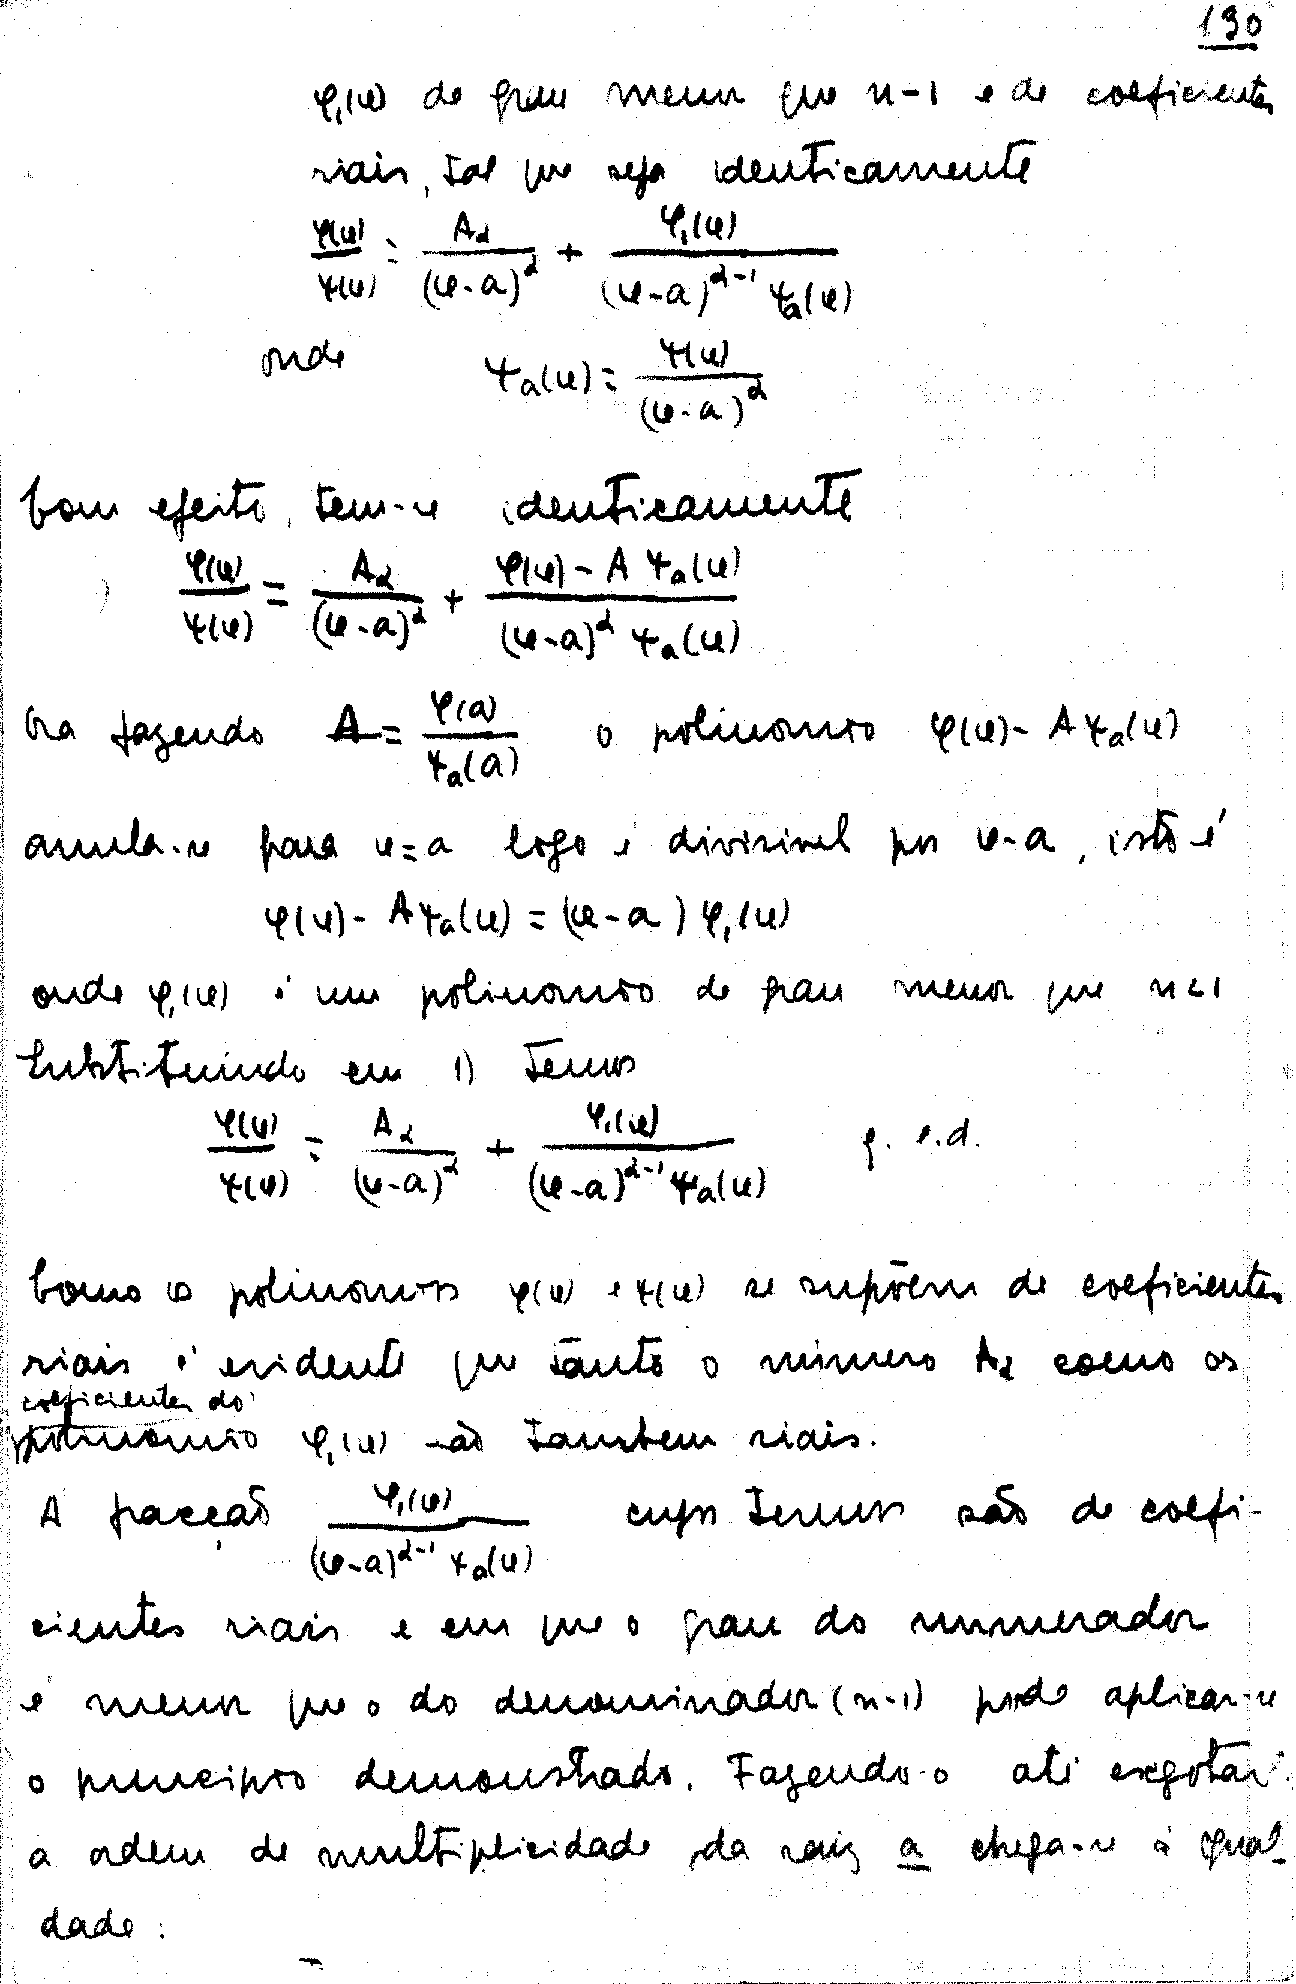 190
φ₁(u) de grau menor que n-1 e de coeficientes
riais, tal que seja identicamente
φ(u)/ψ(u) = A_α/(u-a)^α + φ₁(u)/((u-a)^(α-1) ψ_a(u))
onde ψ_a(u) = ψ(u)/(u-a)^α
Com efeito, tem-se identicamente
1) φ(u)/ψ(u) = A_α/(u-a)^α + (φ(u) - A ψ_a(u))/((u-a)^α ψ_a(u))
Ora fazendo A = φ(a)/ψ_a(a) o polinomio φ(u) - A ψ_a(u)
anula-se para u=a logo é divisivel por u-a, isto é
φ(u) - A ψ_a(u) = (u-a) φ₁(u)
onde φ₁(u) é um polinomio de grau menor que n-1
Substituindo em 1) temos
φ(u)/ψ(u) = A_α/(u-a)^α + φ₁(u)/((u-a)^(α-1) ψ_a(u)) q. e. d.
Como os polinomios φ(u) e ψ(u) se supõem de coeficientes
riais é evidente que tanto o número A_α como os
coeficientes do
polinomio φ₁(u) são tambem riais.
A fracção φ₁(u)/((u-a)^(α-1) ψ_a(u)) cujos termos são de coefi-
cientes riais e em que o grau do numerador
é menor que o do denominador (n-1) pode aplicar-se
o principio demonstrado. Fazendo-o até esgotar
a ordem de multiplicidade da raiz a chega-se à igual-
dade: